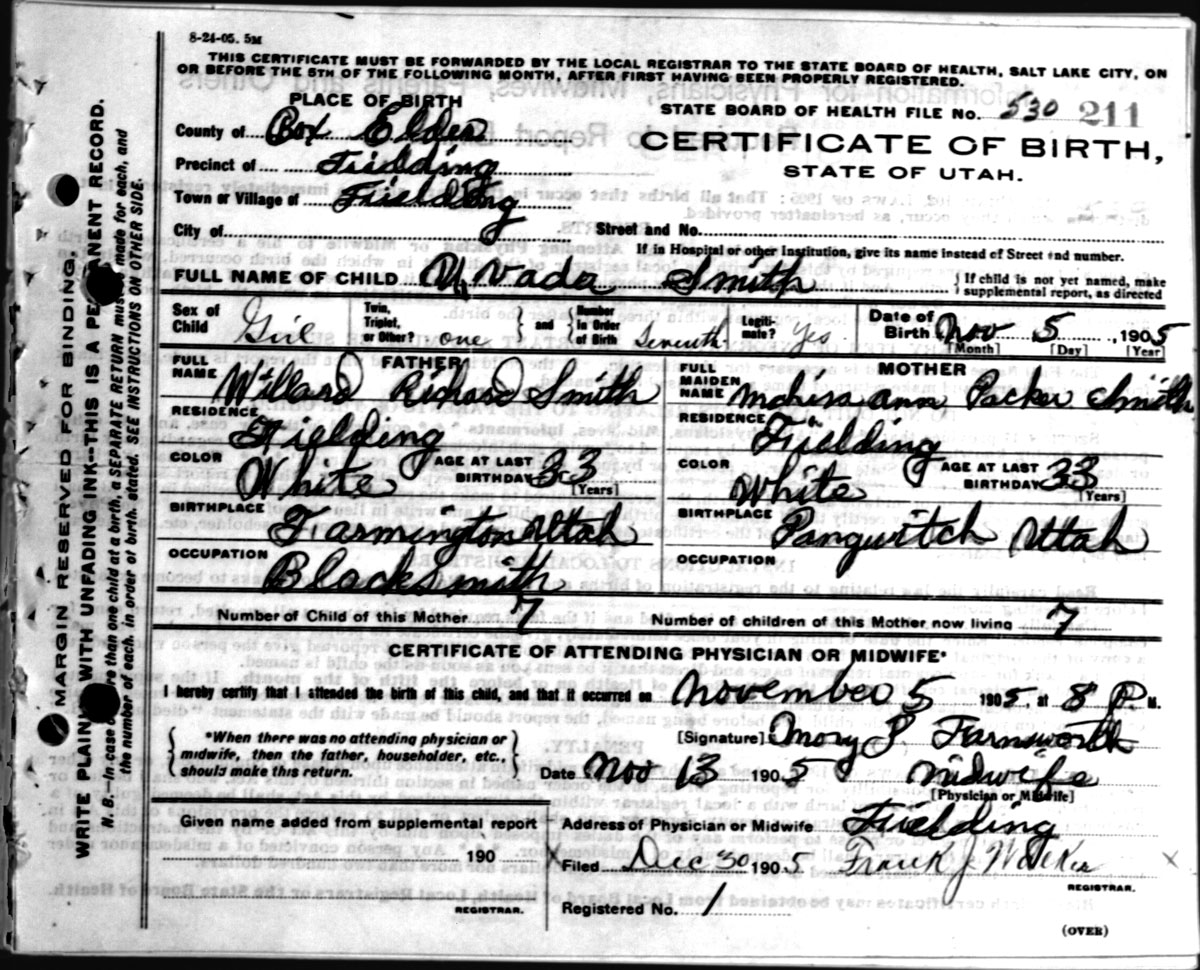 8-24-05. 5M
THIS CERTIFICATE MUST BE FORWARDED BY THE LOCAL REGISTRAR TO THE STATE BOARD OF HEALTH, SALT LAKE CITY, ON
OR BEFORE THE 5TH OF THE FOLLOWING MONTH, AFTER FIRST HAVING BEEN PROPERLY REGISTERED.
PLACE OF BIRTH
STATE BOARD OF HEALTH FILE NO. 530 211
County of Box Elder
CERTIFICATE OF BIRTH,
Precinct of Fielding
STATE OF UTAH.
Town or Village of Fielding
City of Street and No.
If in Hospital or other Institution, give its name instead of Street and number.
FULL NAME OF CHILD Nada Smith { If child is not yet named, make
supplemental report, as directed
Sex of Child Girl Twin, Triplet, or Other? one } and { Number in Order of Birth Seventh Legiti-mate? Yes Date of Birth Nov 5, 1905
[Month] [Day] [Year]
FATHER
FULL NAME Willard Richard Smith
MOTHER
FULL MAIDEN NAME Ann Packer Smith
RESIDENCE Fielding RESIDENCE Fielding
COLOR White AGE AT LAST BIRTHDAY 33 [Years] COLOR White AGE AT LAST BIRTHDAY 33 [Years]
BIRTHPLACE Farmington Utah BIRTHPLACE Pangwitch Utah
OCCUPATION BlackSmith OCCUPATION
Number of Child of this Mother 7 Number of children of this Mother now living 7
CERTIFICATE OF ATTENDING PHYSICIAN OR MIDWIFE*
I hereby certify that I attended the birth of this child, and that it occurred on November 5 1905, at 8 P. M.
{ *When there was no attending physician or
midwife, then the father, householder, etc.,
should make this return. }
[Signature] Mary P Farnsworth
Date Nov 13 1905 Midwife
[Physician or Midwife]
Given name added from supplemental report
190
REGISTRAR.
Address of Physician or Midwife Fielding
X Filed Dec 30 1905 Frank J Walker X
REGISTRAR.
Registered No. 1
(OVER)
MARGIN RESERVED FOR BINDING.
WRITE PLAINLY WITH UNFADING INK--THIS IS A PERMANENT RECORD.
N. B.--In case of more than one child at a birth, a SEPARATE RETURN must be made for each, and
the number of each, in order of birth, stated. SEE INSTRUCTIONS ON OTHER SIDE.